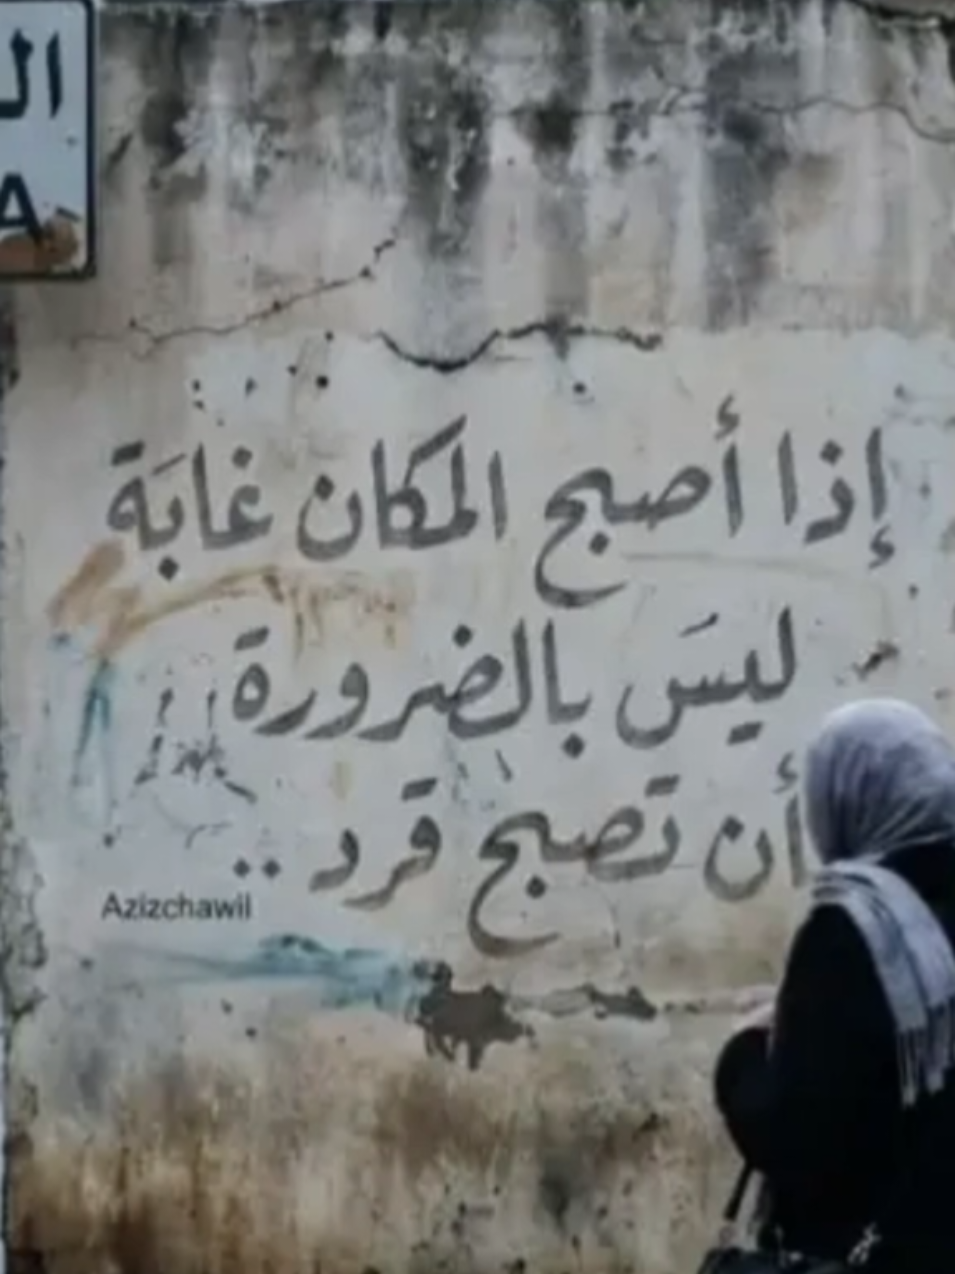 ال
A
إذا أصبح المكان غابَة
ليسَ بالضرورة
أن تصبح قرد ..
Azizchawil